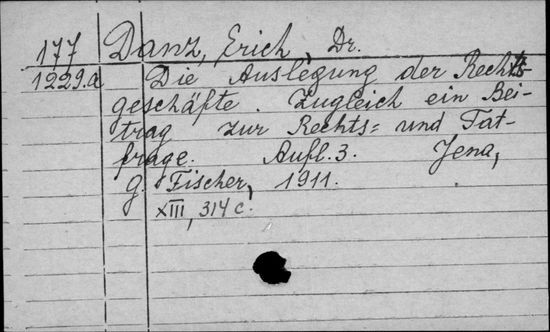 177 Danz, Erich, Dr.
1229.a Die Auslegung der Rechts-
geschäfte. Zugleich ein Bei-
trag zur Rechts= und Tat-
frage. Aufl. 3. Jena,
G. Fischer, 1911.
XIII, 314 c.